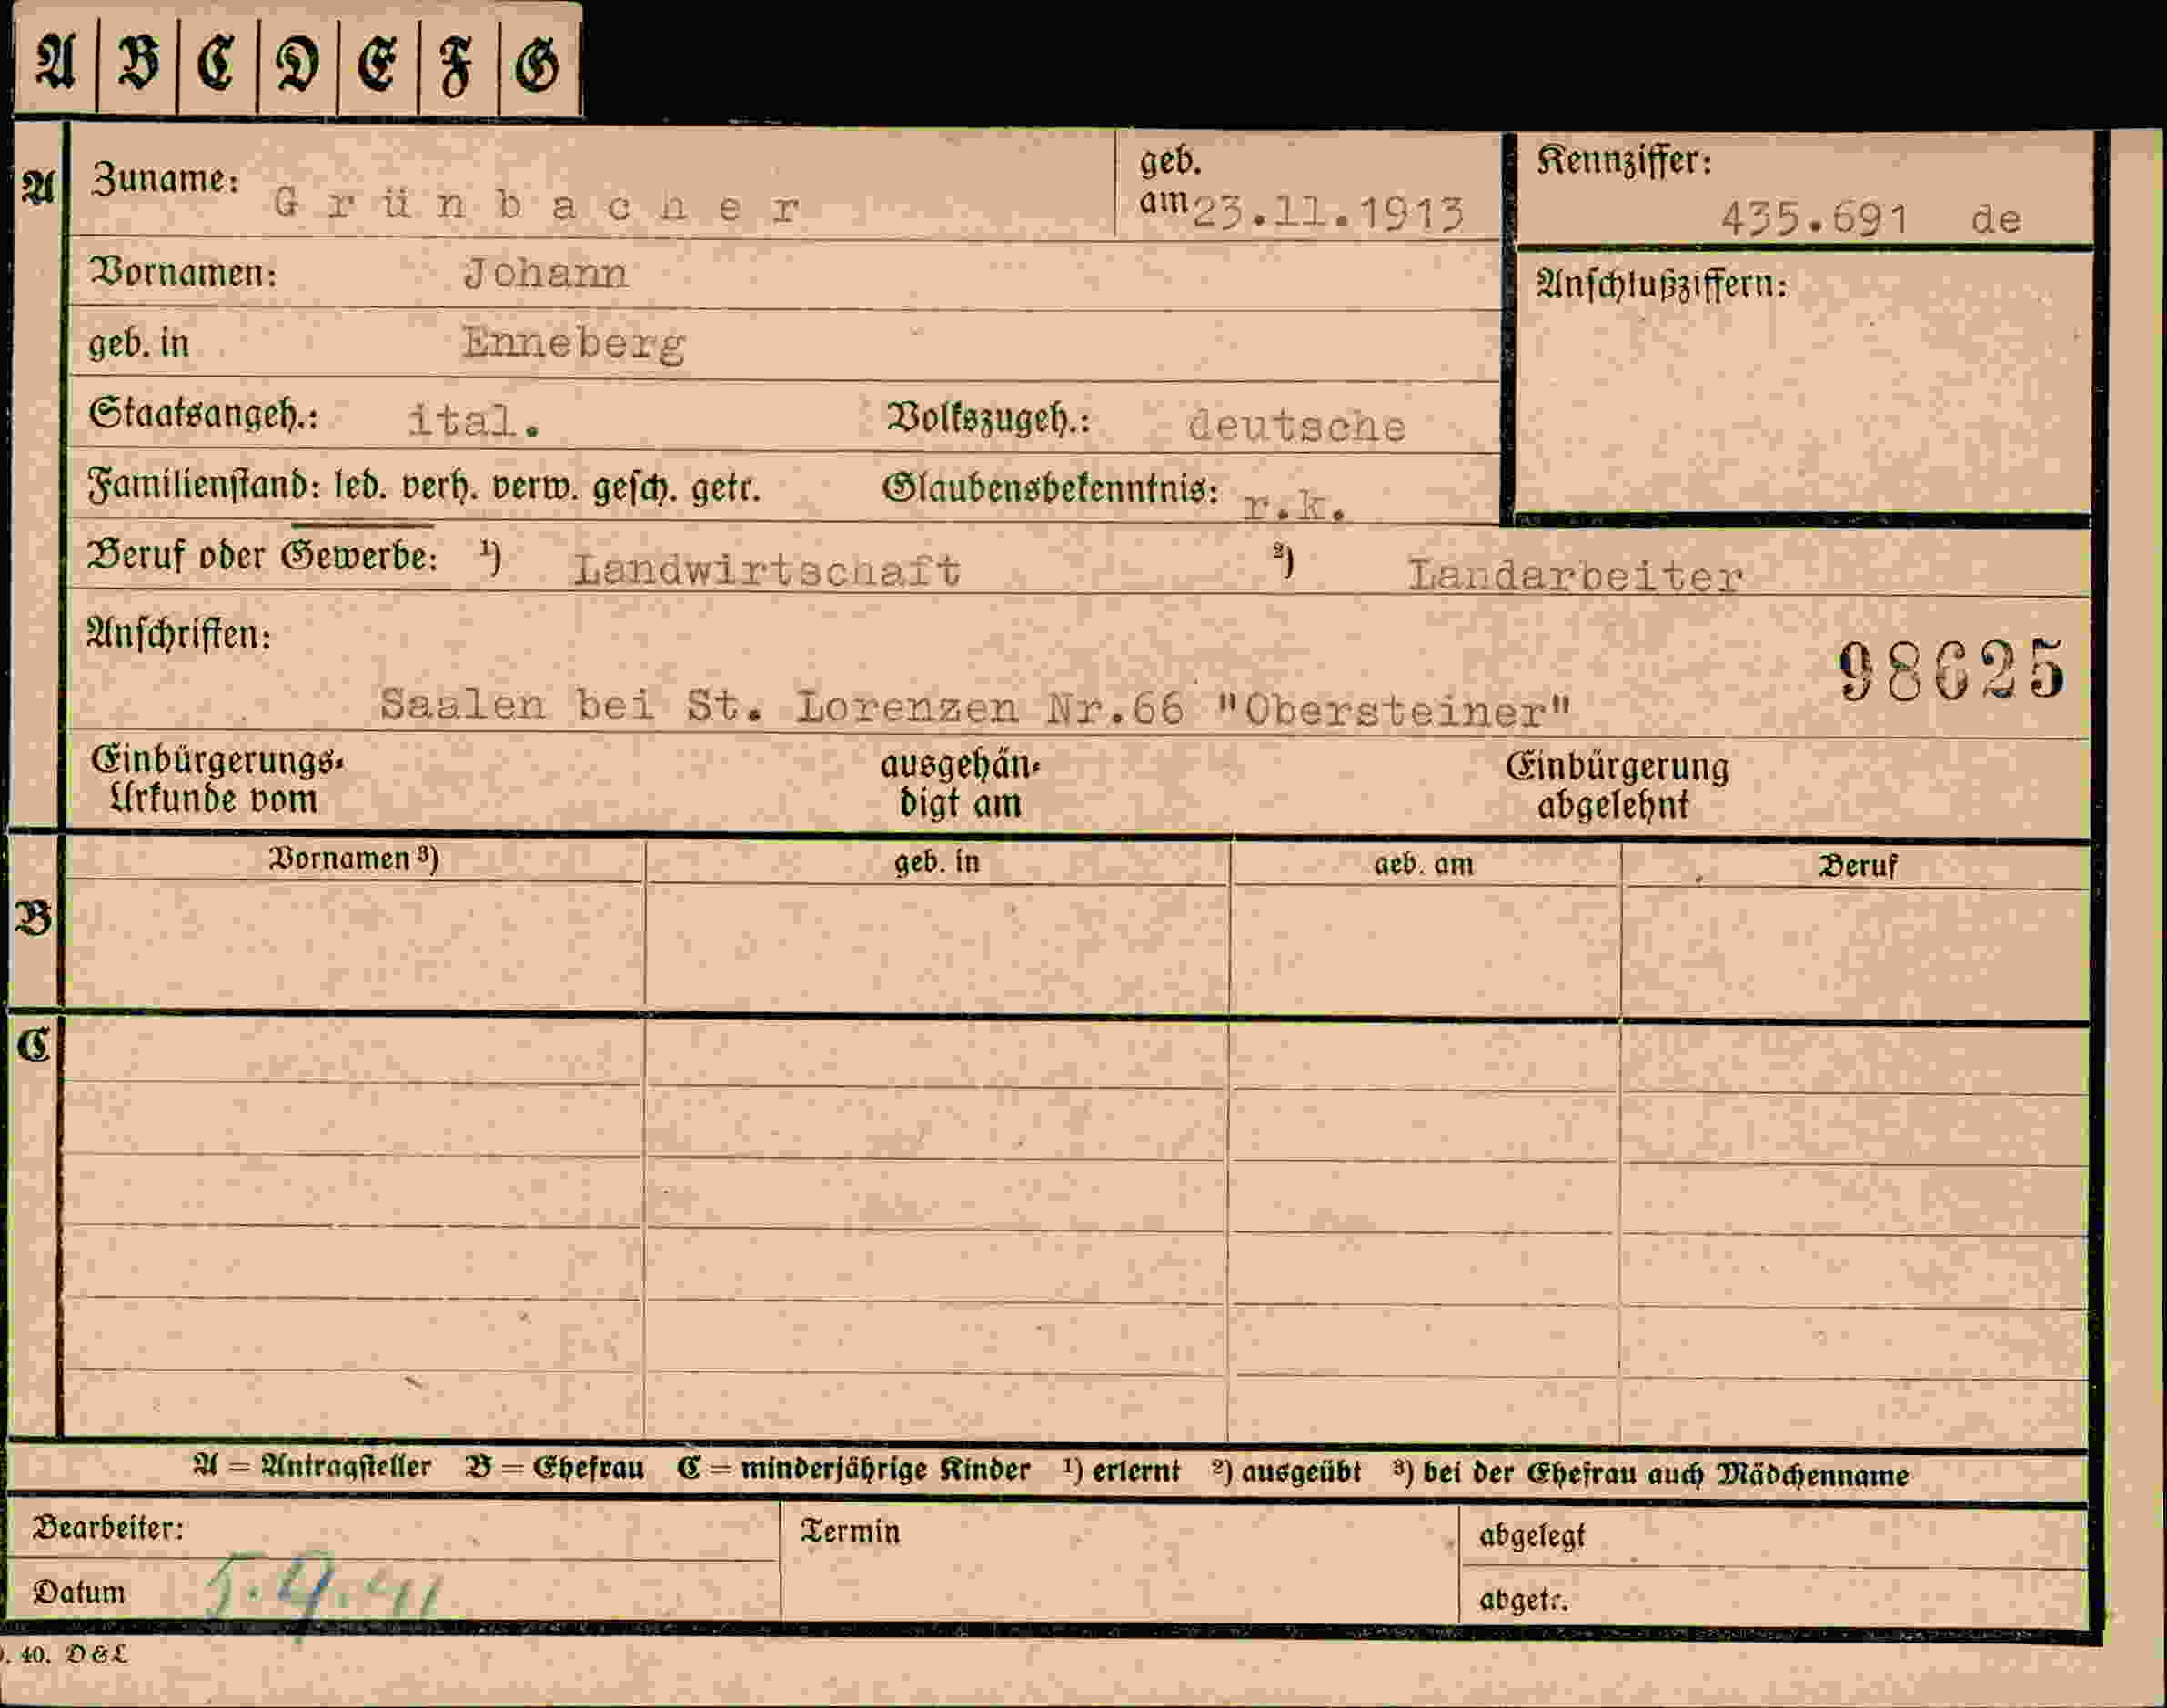 A B C D E F G
A Zuname: Grünbacher geb. am 23.11.1913 Kennziffer: 435.691 de
Vornamen: Johann Anschlußziffern:
geb. in Enneberg
Staatsangeh.: ital. Volkszugeh.: deutsche
Familienstand: led. verh. verw. gesch. getr. Glaubensbekenntnis: r.k.
Beruf oder Gewerbe: ¹) Landwirtschaft ²) Landarbeiter
Anschriften:
98625
Saalen bei St. Lorenzen Nr.66 "Obersteiner"
Einbürgerungs- ausgehän- Einbürgerung
Urkunde vom digt am abgelehnt
Vornamen ³) geb. in geb. am Beruf
B
C
A = Antragsteller B = Ehefrau C = minderjährige Kinder ¹) erlernt ²) ausgeübt ³) bei der Ehefrau auch Mädchenname
Bearbeiter: Termin abgelegt
Datum 5.9.41 abgetr.
. 40. D & L